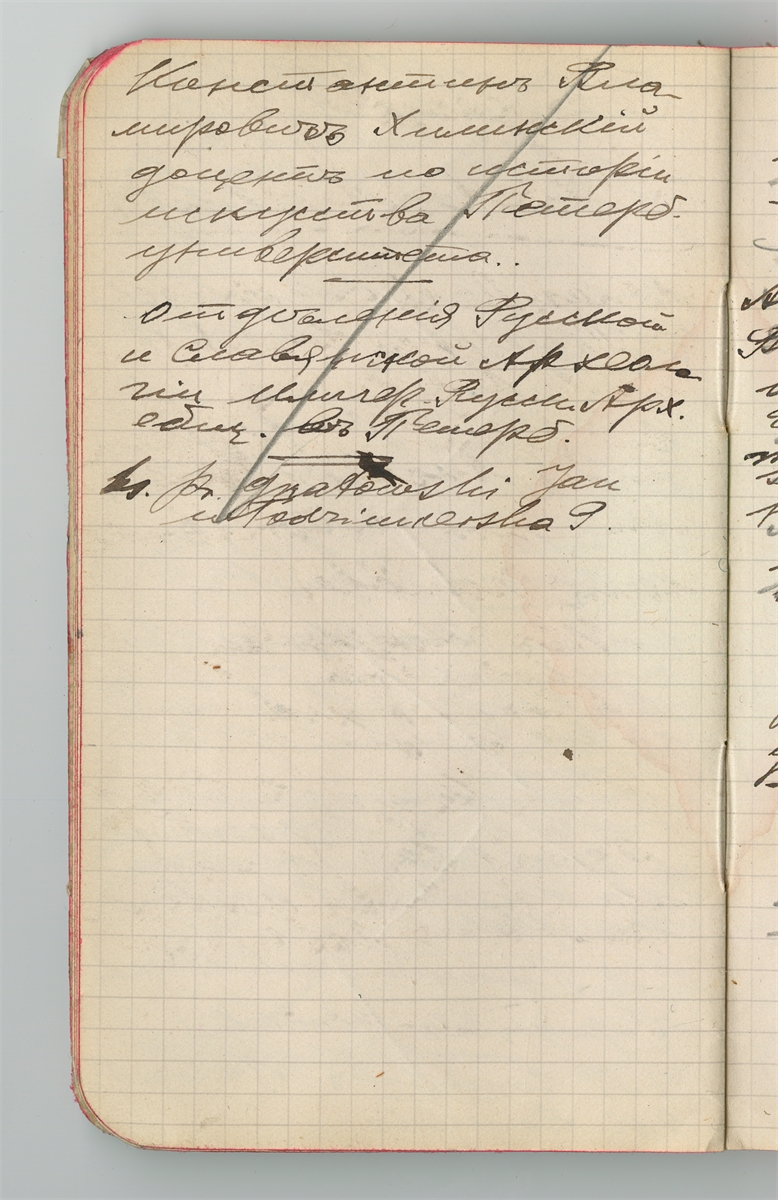 Константинъ Вла-
мировичъ Хилинскій
доцентъ по исторіи
искусства Петерб.
университета..
отдѣленія Русской
и Славянской Археоло
гіи Импер. Русск. Арх.
общ. въ Петерб.
ks. pr. Gnatowski Jan
włodzimierska 9.